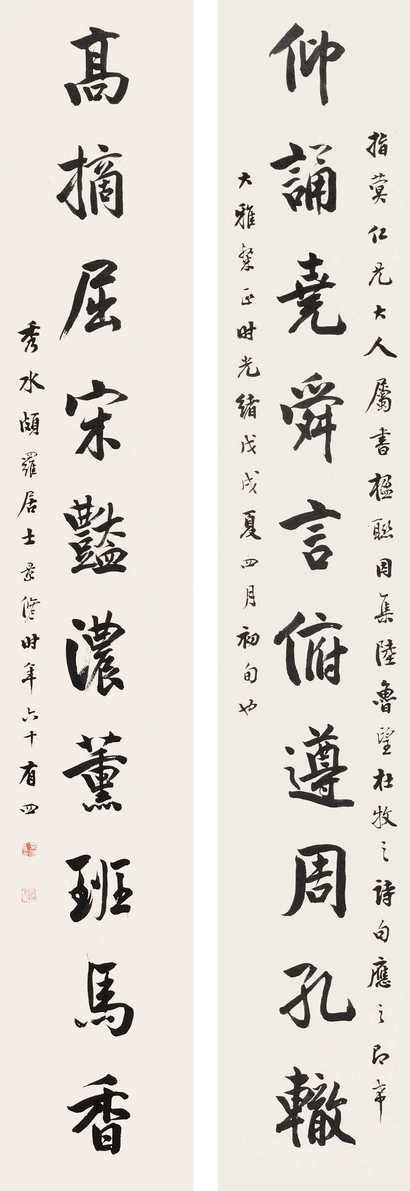 指蓂仁兄大人屬書楹聯因集陸魯望杜牧之詩句應之即希
仰誦堯舜言俯遵周孔轍
大雅粲正时光緒戊戌夏四月初旬也
高摘屈宋豔濃薰班馬香
秀水頗羅居士景修时年六十有四